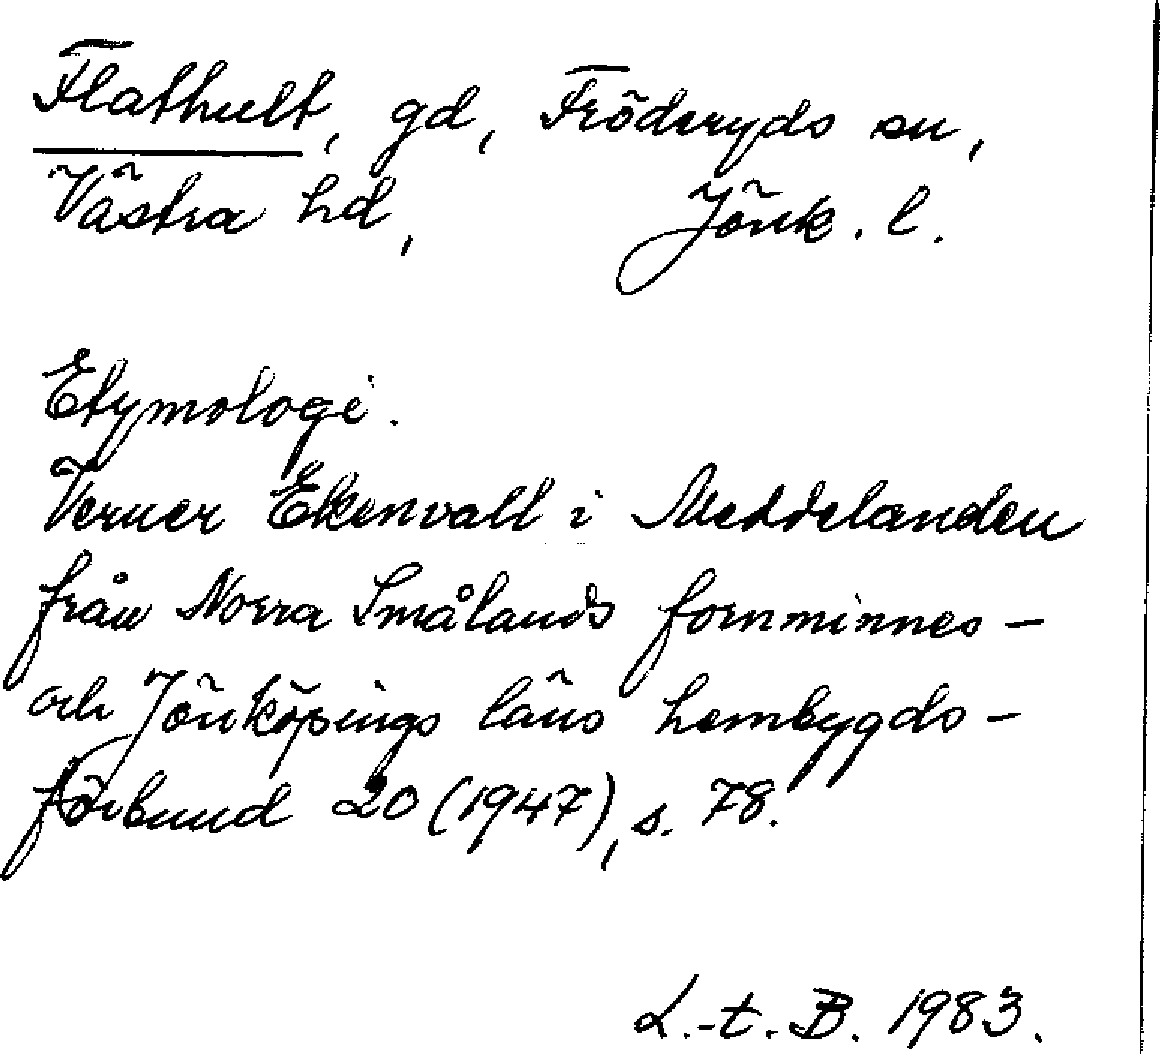 Flathult, gd, Fröderyds sn,
Västra hd, Jönk. l.
Etymologi.
Verner Ekenvall i Meddelanden
från Norra Smålands fornminnes-
och Jönköpings läns hembygds-
förbund 20 (1947), s. 78.
L.-t. B. 1983.